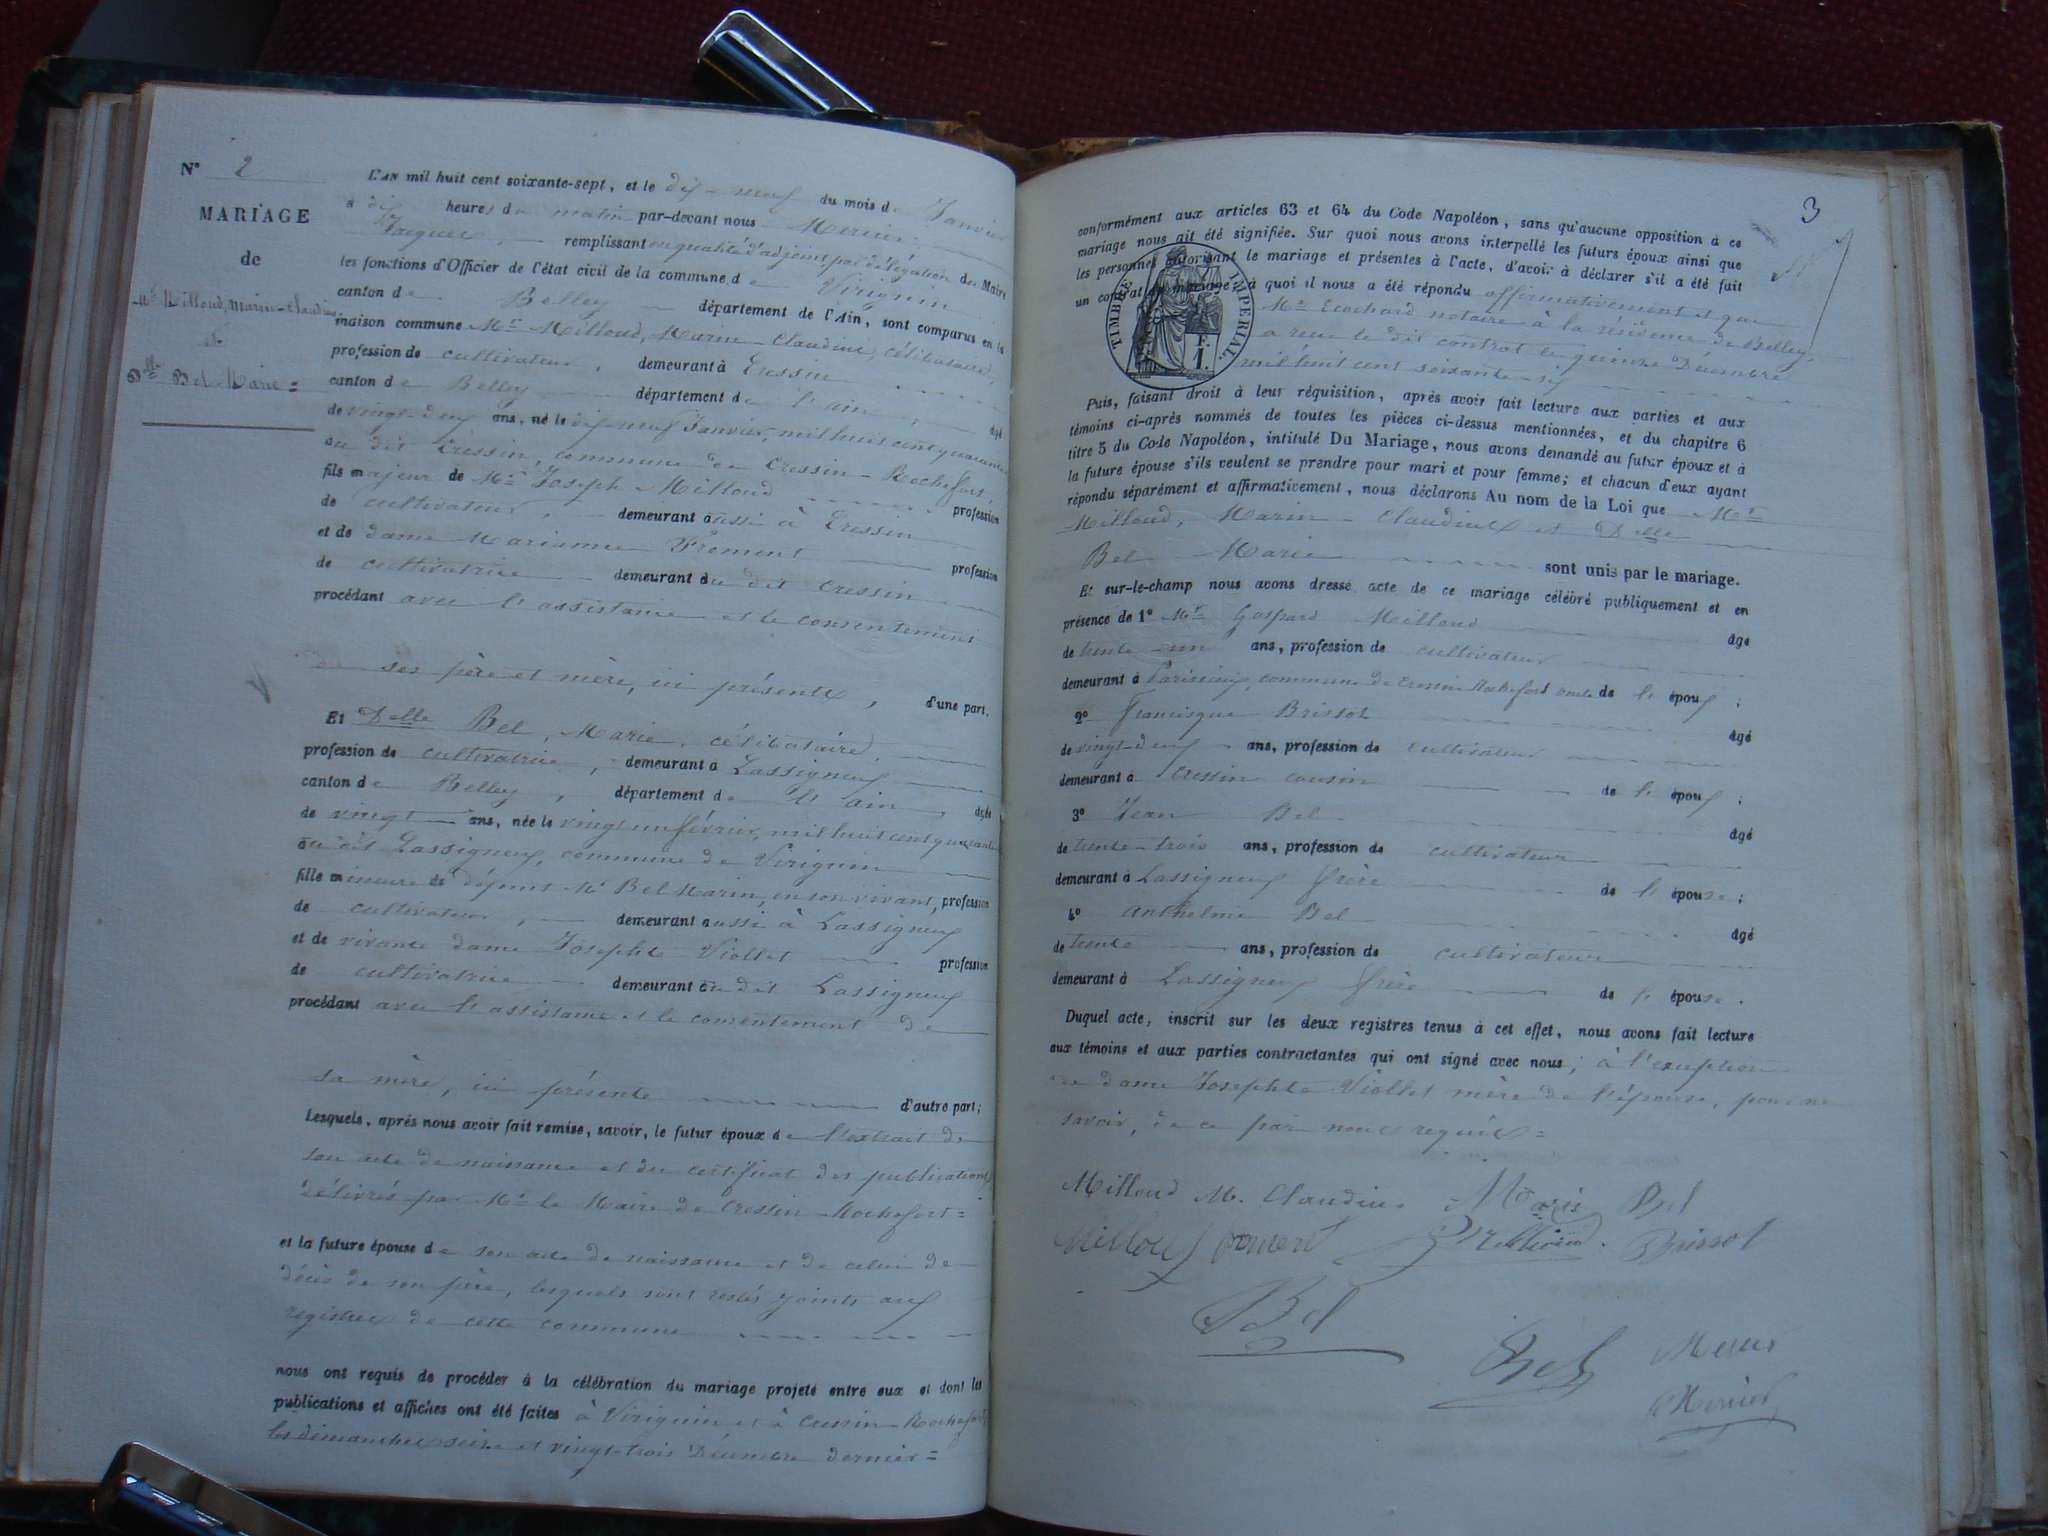 N° 2
MARIAGE
de
Mr Milloud, Marin-Claudius
et
Dlle Bel Marie =
L'AN mil huit cent soixante-sept, et le dix-neuf du mois de Janvier
à dix heures du matin par-devant nous Mercier
Jacques, remplissant en qualité d'adjoint par délégation du Maire
les fonctions d'Officier de l'état civil de la commune de Virignin
canton de Belley département de l'Ain, sont comparus en la
maison commune Mr Milloud, Marin-Claudius, célibataire,
profession de cultivateur, demeurant à Cressin
canton de Belley département de l'ain, âgé
de vingt-deux ans, né le dix-neuf Janvier, mil huit cent quarante
au dit Cressin, commune de Cressin-Rochefort,
fils majeur de Mr Joseph Milloud profession
de cultivateur, demeurant aussi à Cressin
et de dame Marianne Froment profession
de cultivatrice demeurant au dit Cressin
procédant avec l'assistance et le consentement
de ses père et mère, ici présents, d'une part.
Et Delle Bel, Marie, célibataire
profession de cultivatrice, demeurant à Lassigneux
canton de Belley, département de l'ain, âgée
de vingt ans, née le vingt un février, mil huit cent quarante
au dit Lassigneux, commune de Virignin
fille mineure de défunt Mr Bel Marin, en son vivant, profession
de cultivateur, demeurant aussi à Lassigneux
et de vivante dame Josephte Viollet profession
de cultivatrice demeurant au dit Lassigneux
procédant avec l'assistance et le consentement de
sa mère, ici présente d'autre part;
Lesquels, après nous avoir fait remise, savoir, le futur époux de l'extrait de
son acte de naissance et du certificat des publications
délivrés par Mr le Maire de Cressin-Rochefort =
et la future épouse de son acte de naissance et de celui de
décès de son père, lesquels sont restés joints aux
registres de cette commune
nous ont requis de procéder à la célébration du mariage projeté entre eux et dont les
publications et affiches ont été faites à Virignin et à Cressin-Rochefort
les dimanches seize et vingt-trois Décembre dernier =
3
conformément aux articles 63 et 64 du Code Napoléon, sans qu'aucune opposition à ce
mariage nous ait été signifiée. Sur quoi nous avons interpellé les futurs époux ainsi que
les personnes autorisant le mariage et présentes à l'acte, d'avoir à déclarer s'il a été fait
un contrat de mariage, à quoi il nous a été répondu affirmativement et que
Me Ecochard notaire à la résidence de Belley,
a reçu le dit contrat le quinze Décembre
mil huit cent soixante-six
TIMBRE IMPERIAL.
F.
1.
Puis, faisant droit à leur réquisition, après avoir fait lecture aux parties et aux
témoins ci-après nommés de toutes les pièces ci-dessus mentionnées, et du chapitre 6
titre 5 du Code Napoléon, intitulé Du Mariage, nous avons demandé au futur époux et à
la future épouse s'ils veulent se prendre pour mari et pour femme; et chacun d'eux ayant
répondu séparément et affirmativement, nous déclarons Au nom de la Loi que Mr
Milloud, Marin-Claudius et Delle
Bel Marie sont unis par le mariage.
Et sur-le-champ nous avons dressé acte de ce mariage célébré publiquement et en
présence de 1° Mr Gaspard Milloud âgé
de trente-un ans, profession de cultivateur
demeurant à Parissieux, commune de Cressin Rochefort oncle de l'époux;
2° Francisque Brissot âgé
de vingt-deux ans, profession de cultivateur
demeurant à Cressin cousin de l'époux;
3° Jean Bel âgé
de trente-trois ans, profession de cultivateur
demeurant à Lassigneux frère de l'épouse;
4° Anthelme Bel âgé
de trente ans, profession de cultivateur
demeurant à Lassigneux frère de l'épouse.
Duquel acte, inscrit sur les deux registres tenus à cet effet, nous avons fait lecture
aux témoins et aux parties contractantes qui ont signé avec nous; à l'exception
de dame Josephte Viollet mère de l'épouse, pour ne
savoir, de ce par nous requis =
Milloud M. Claudius Marie Bel
Milloud froment Milloud. Brissot
Bel
Bel Mercier